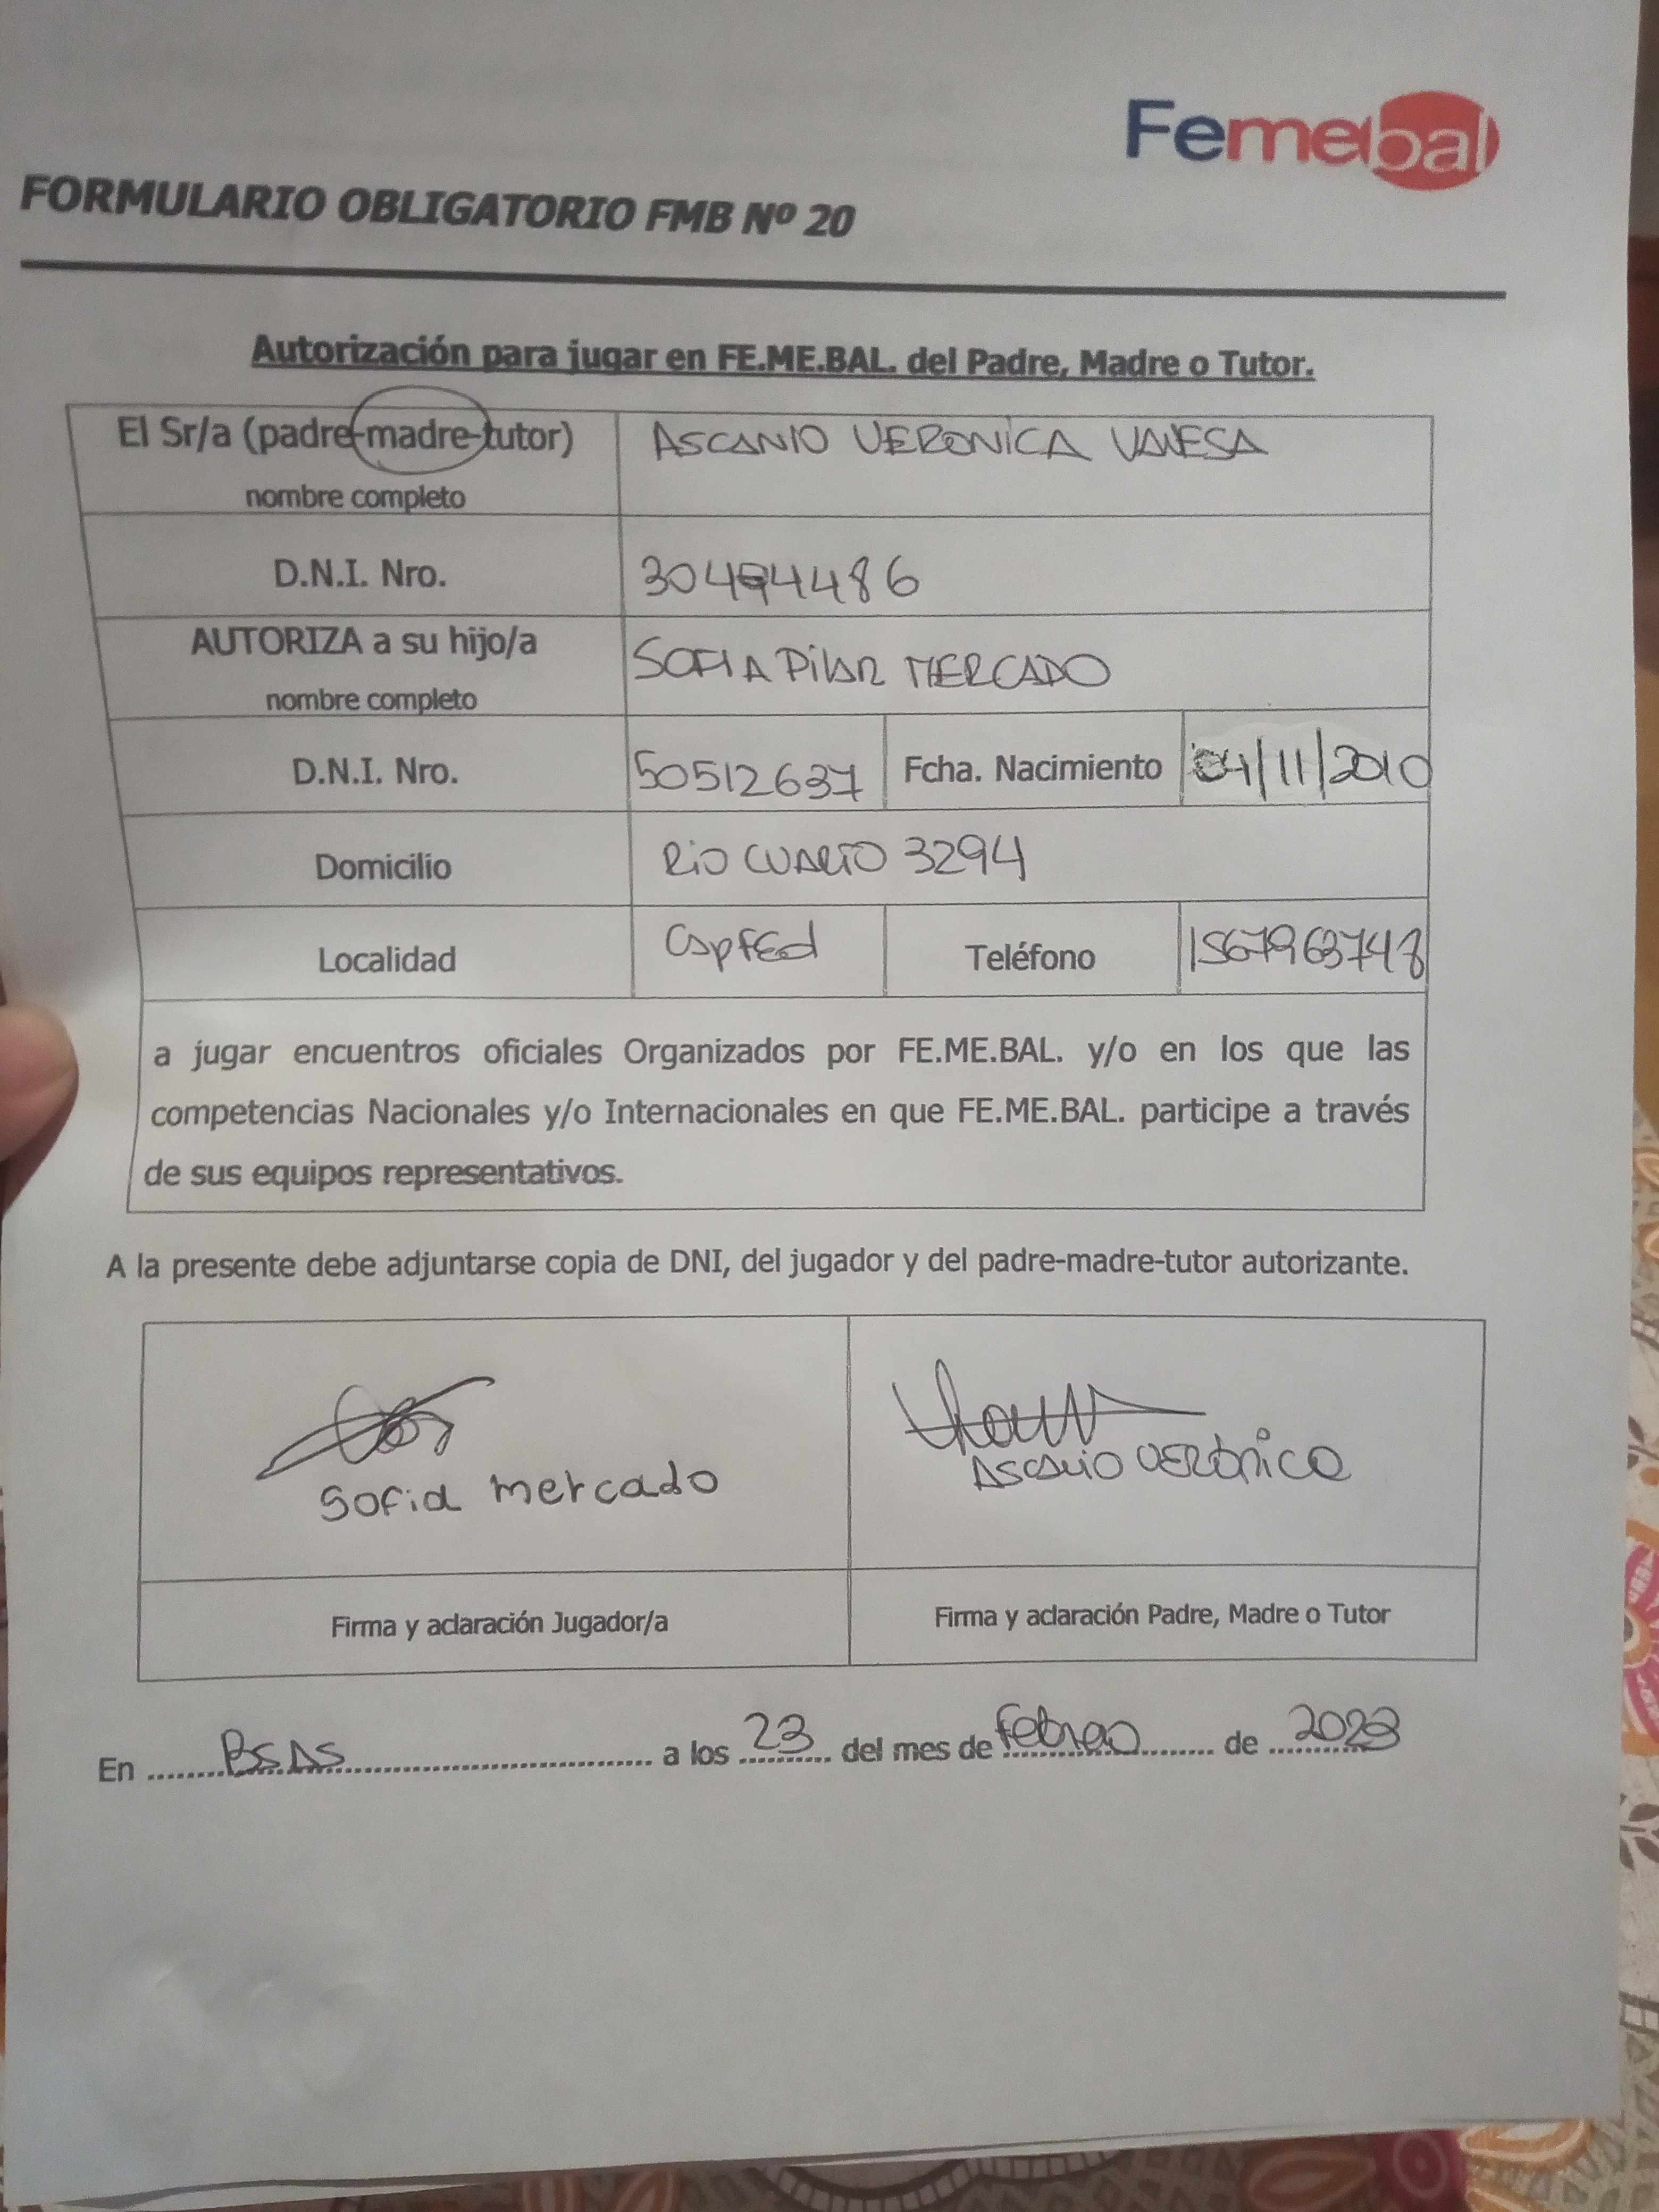 Femebal
FORMULARIO OBLIGATORIO FMB Nº 20
Autorización para jugar en FE.ME.BAL. del Padre, Madre o Tutor.
El Sr/a (padre-madre-tutor) ASCANIO VERONICA VANESA
nombre completo
D.N.I. Nro. 30494486
AUTORIZA a su hijo/a SOFIA PilAR MERCADO
nombre completo
D.N.I. Nro. 50512637 Fcha. Nacimiento 04/11/2010
Domicilio RiO CUARTO 3294
Localidad CapFEd Teléfono 1567963748
a jugar encuentros oficiales Organizados por FE.ME.BAL. y/o en los que las
competencias Nacionales y/o Internacionales en que FE.ME.BAL. participe a través
de sus equipos representativos.
A la presente debe adjuntarse copia de DNI, del jugador y del padre-madre-tutor autorizante.
Sofia mercado
ASCANIO VERÓNICA
Firma y aclaración Jugador/a
Firma y aclaración Padre, Madre o Tutor
En BSAS a los 23 del mes de febrero de 2023